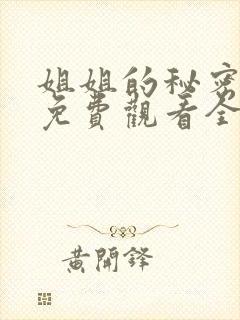 姐姐的秘密
免費觀看全
黃開鋒